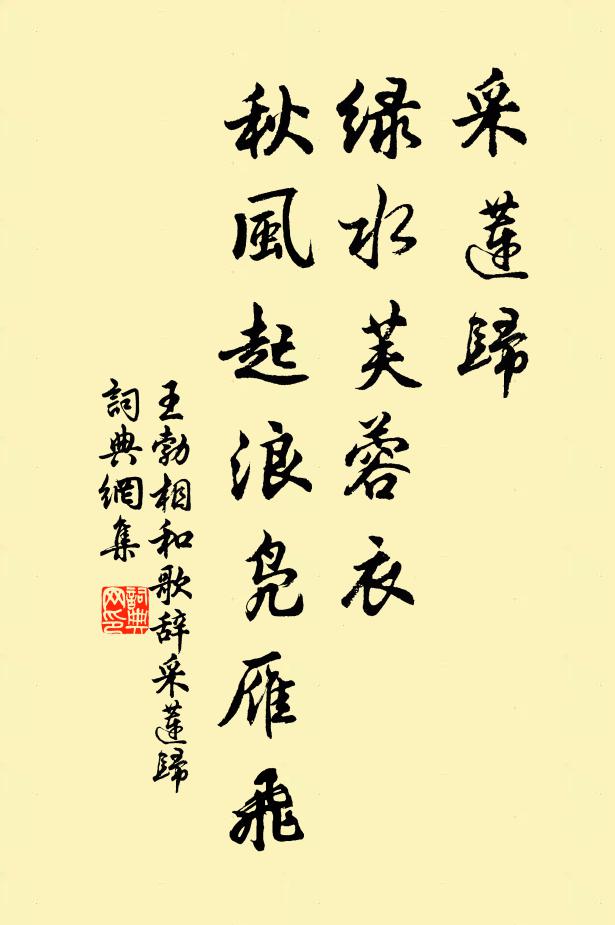 采蓮歸
緑水芙蓉衣
秋風起浪凫雁飛
王勃相和歌辞采蓮歸
詞典網集
詞典网印